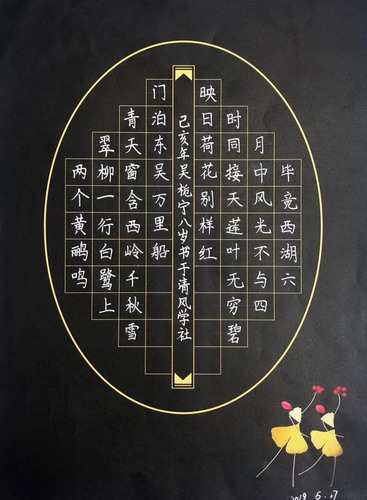 毕竟西湖六
月中风光不与四
时同接天莲叶无穷碧
映日荷花别样红
两个黄鹂鸣
翠柳一行白鹭上
青天窗含西岭千秋雪
门泊东吴万里船
己亥年吴栀宁八岁书于清风学社
2019